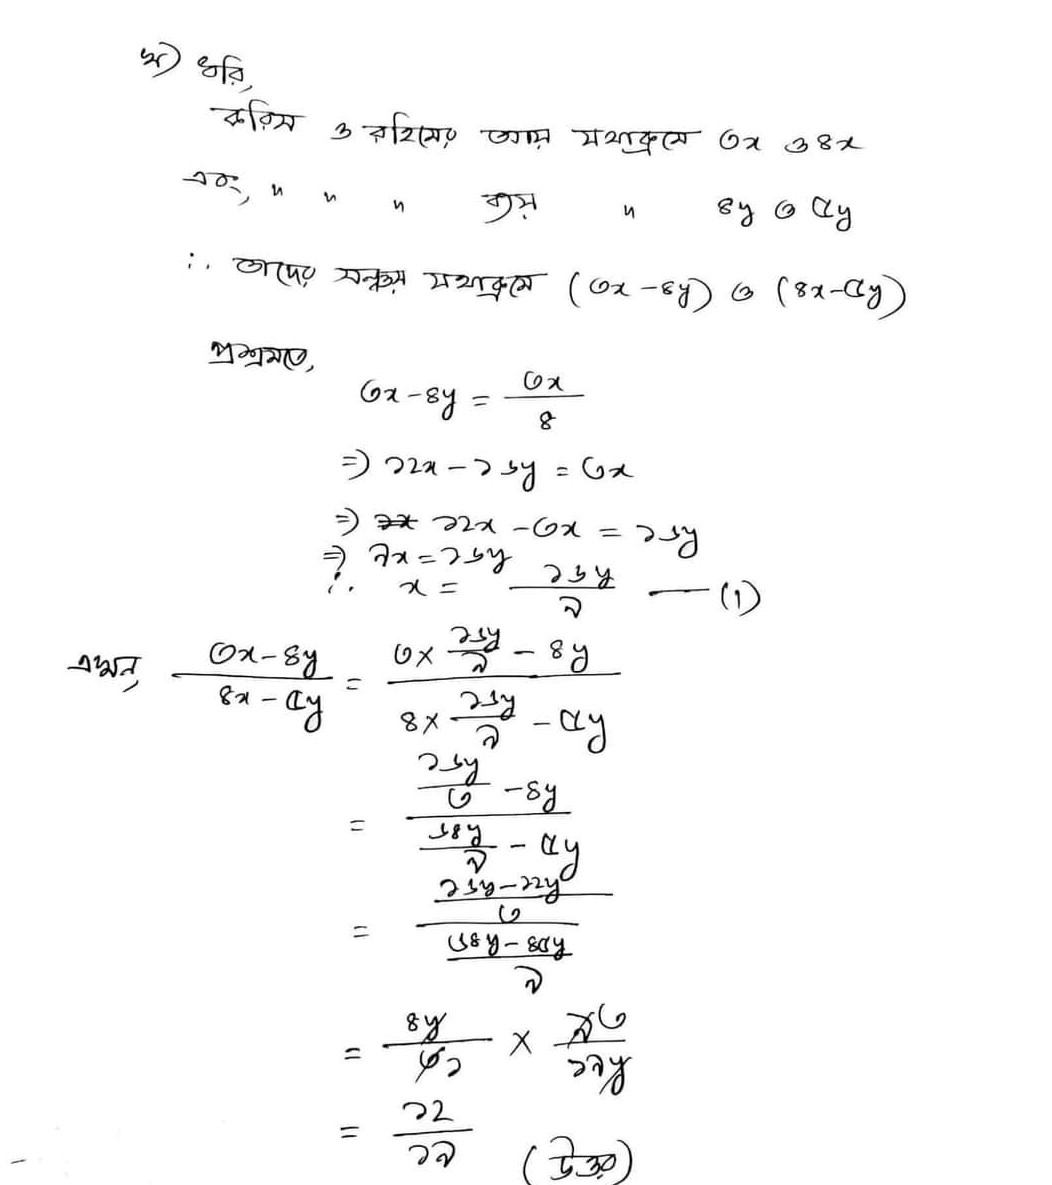 খ) ধরি,
করিম ও রহিমের আয় যথাক্রমে ৩x ও ৪x
এবং, " " " ব্যয় " ৪y ও ৫y
∴ তাদের সঞ্চয় যথাক্রমে (৩x-৪y) ও (৪x-৫y)
প্রশ্নমতে,
৩x-৪y = ৩x/৪
⇒ ১২x - ১৬y = ৩x
⇒ ১২x - ৩x = ১৬y
⇒ ৯x = ১৬y
∴ x = ১৬y/৯ — (1)
এখন, (৩x-৪y)/(৪x-৫y) = (৩ × ১৬y/৯ - ৪y)/(৪ × ১৬y/৯ - ৫y)
= (১৬y/৩ - ৪y)/(৬৪y/৯ - ৫y)
= ((১৬y-১২y)/৩)/((৬৪y-৪৫y)/৯)
= ৪y/৩ × ৯৩/১৯y
= ১২/১৯ (উত্তর)